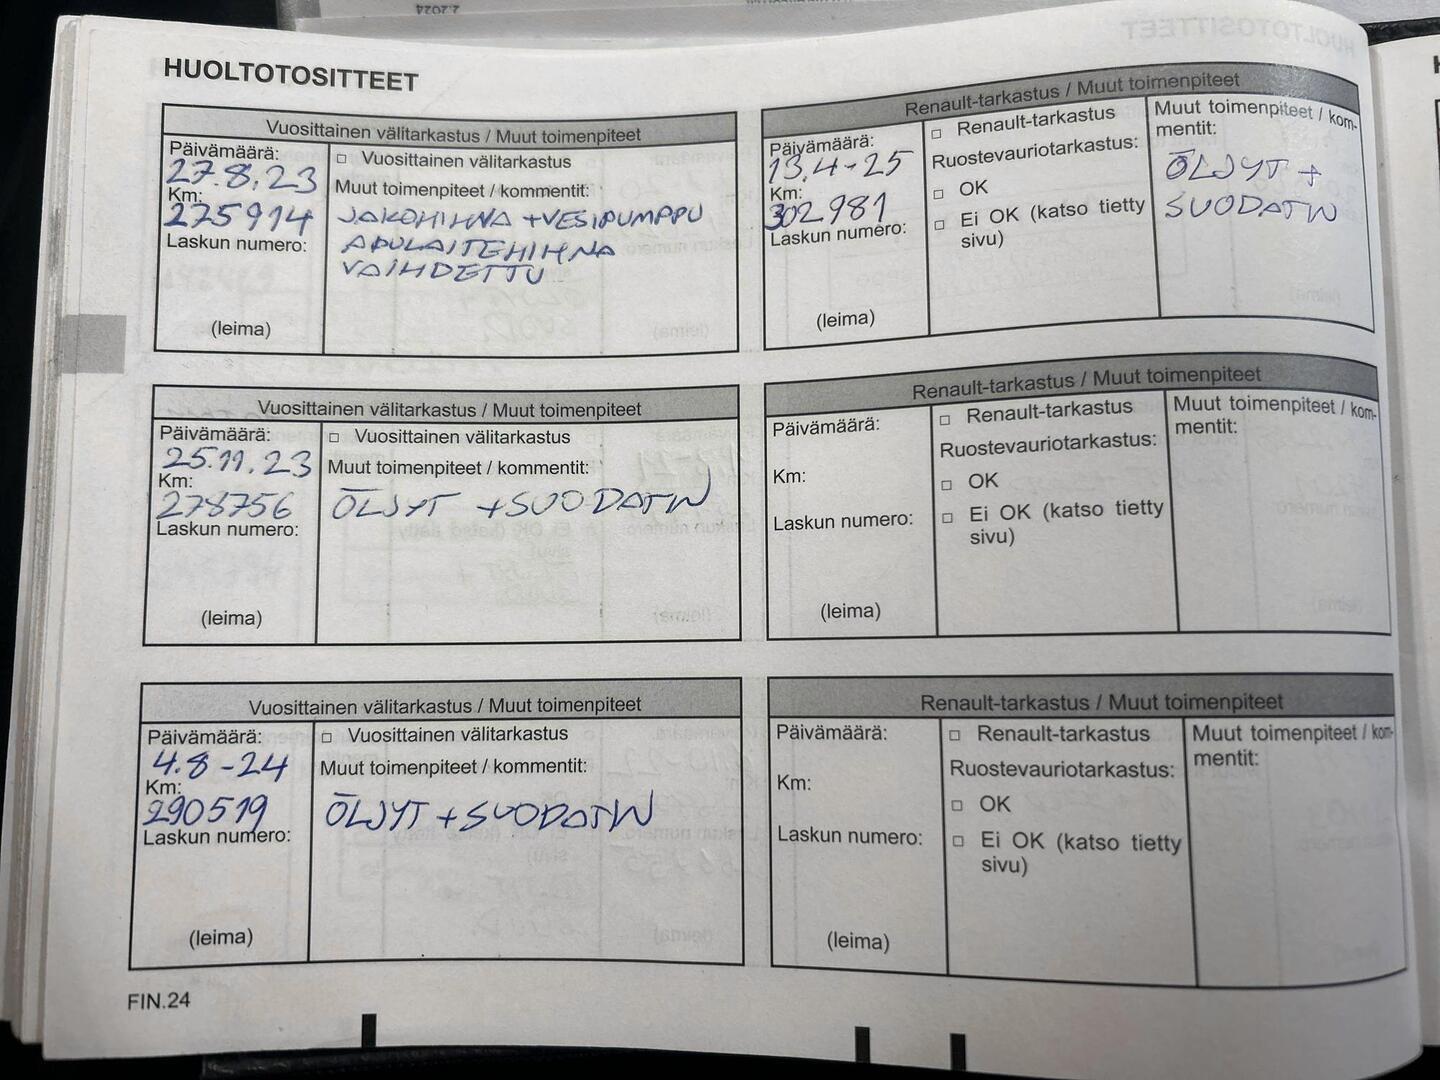 2.2024
HUOLTOTOSITTEET
Vuosittainen välitarkastus / Muut toimenpiteet
Päivämäärä:
27.8.23
Km:
275914
Laskun numero:
(leima)
□ Vuosittainen välitarkastus
Muut toimenpiteet / kommentit:
JAKOHIHNA + VESIPUMPPU
APULAITEHIHNA
VAIHDETTU
Vuosittainen välitarkastus / Muut toimenpiteet
Päivämäärä:
25.11.23
Km:
278756
Laskun numero:
(leima)
□ Vuosittainen välitarkastus
Muut toimenpiteet / kommentit:
ÖLJYT + SUODATIN
Vuosittainen välitarkastus / Muut toimenpiteet
Päivämäärä:
4.8-24
Km:
290519
Laskun numero:
(leima)
□ Vuosittainen välitarkastus
Muut toimenpiteet / kommentit:
ÖLJYT + SUODATIN
Renault-tarkastus / Muut toimenpiteet
Päivämäärä:
13.4-25
Km:
302981
Laskun numero:
(leima)
□ Renault-tarkastus
Ruostevauriotarkastus:
□ OK
□ Ei OK (katso tietty
sivu)
Muut toimenpiteet / kom-
mentit:
ÖLJYT +
SUODATIN
Renault-tarkastus / Muut toimenpiteet
Päivämäärä:
Km:
Laskun numero:
(leima)
□ Renault-tarkastus
Ruostevauriotarkastus:
□ OK
□ Ei OK (katso tietty
sivu)
Muut toimenpiteet / kom-
mentit:
Renault-tarkastus / Muut toimenpiteet
Päivämäärä:
Km:
Laskun numero:
(leima)
□ Renault-tarkastus
Ruostevauriotarkastus:
□ OK
□ Ei OK (katso tietty
sivu)
Muut toimenpiteet / kom-
mentit:
FIN.24